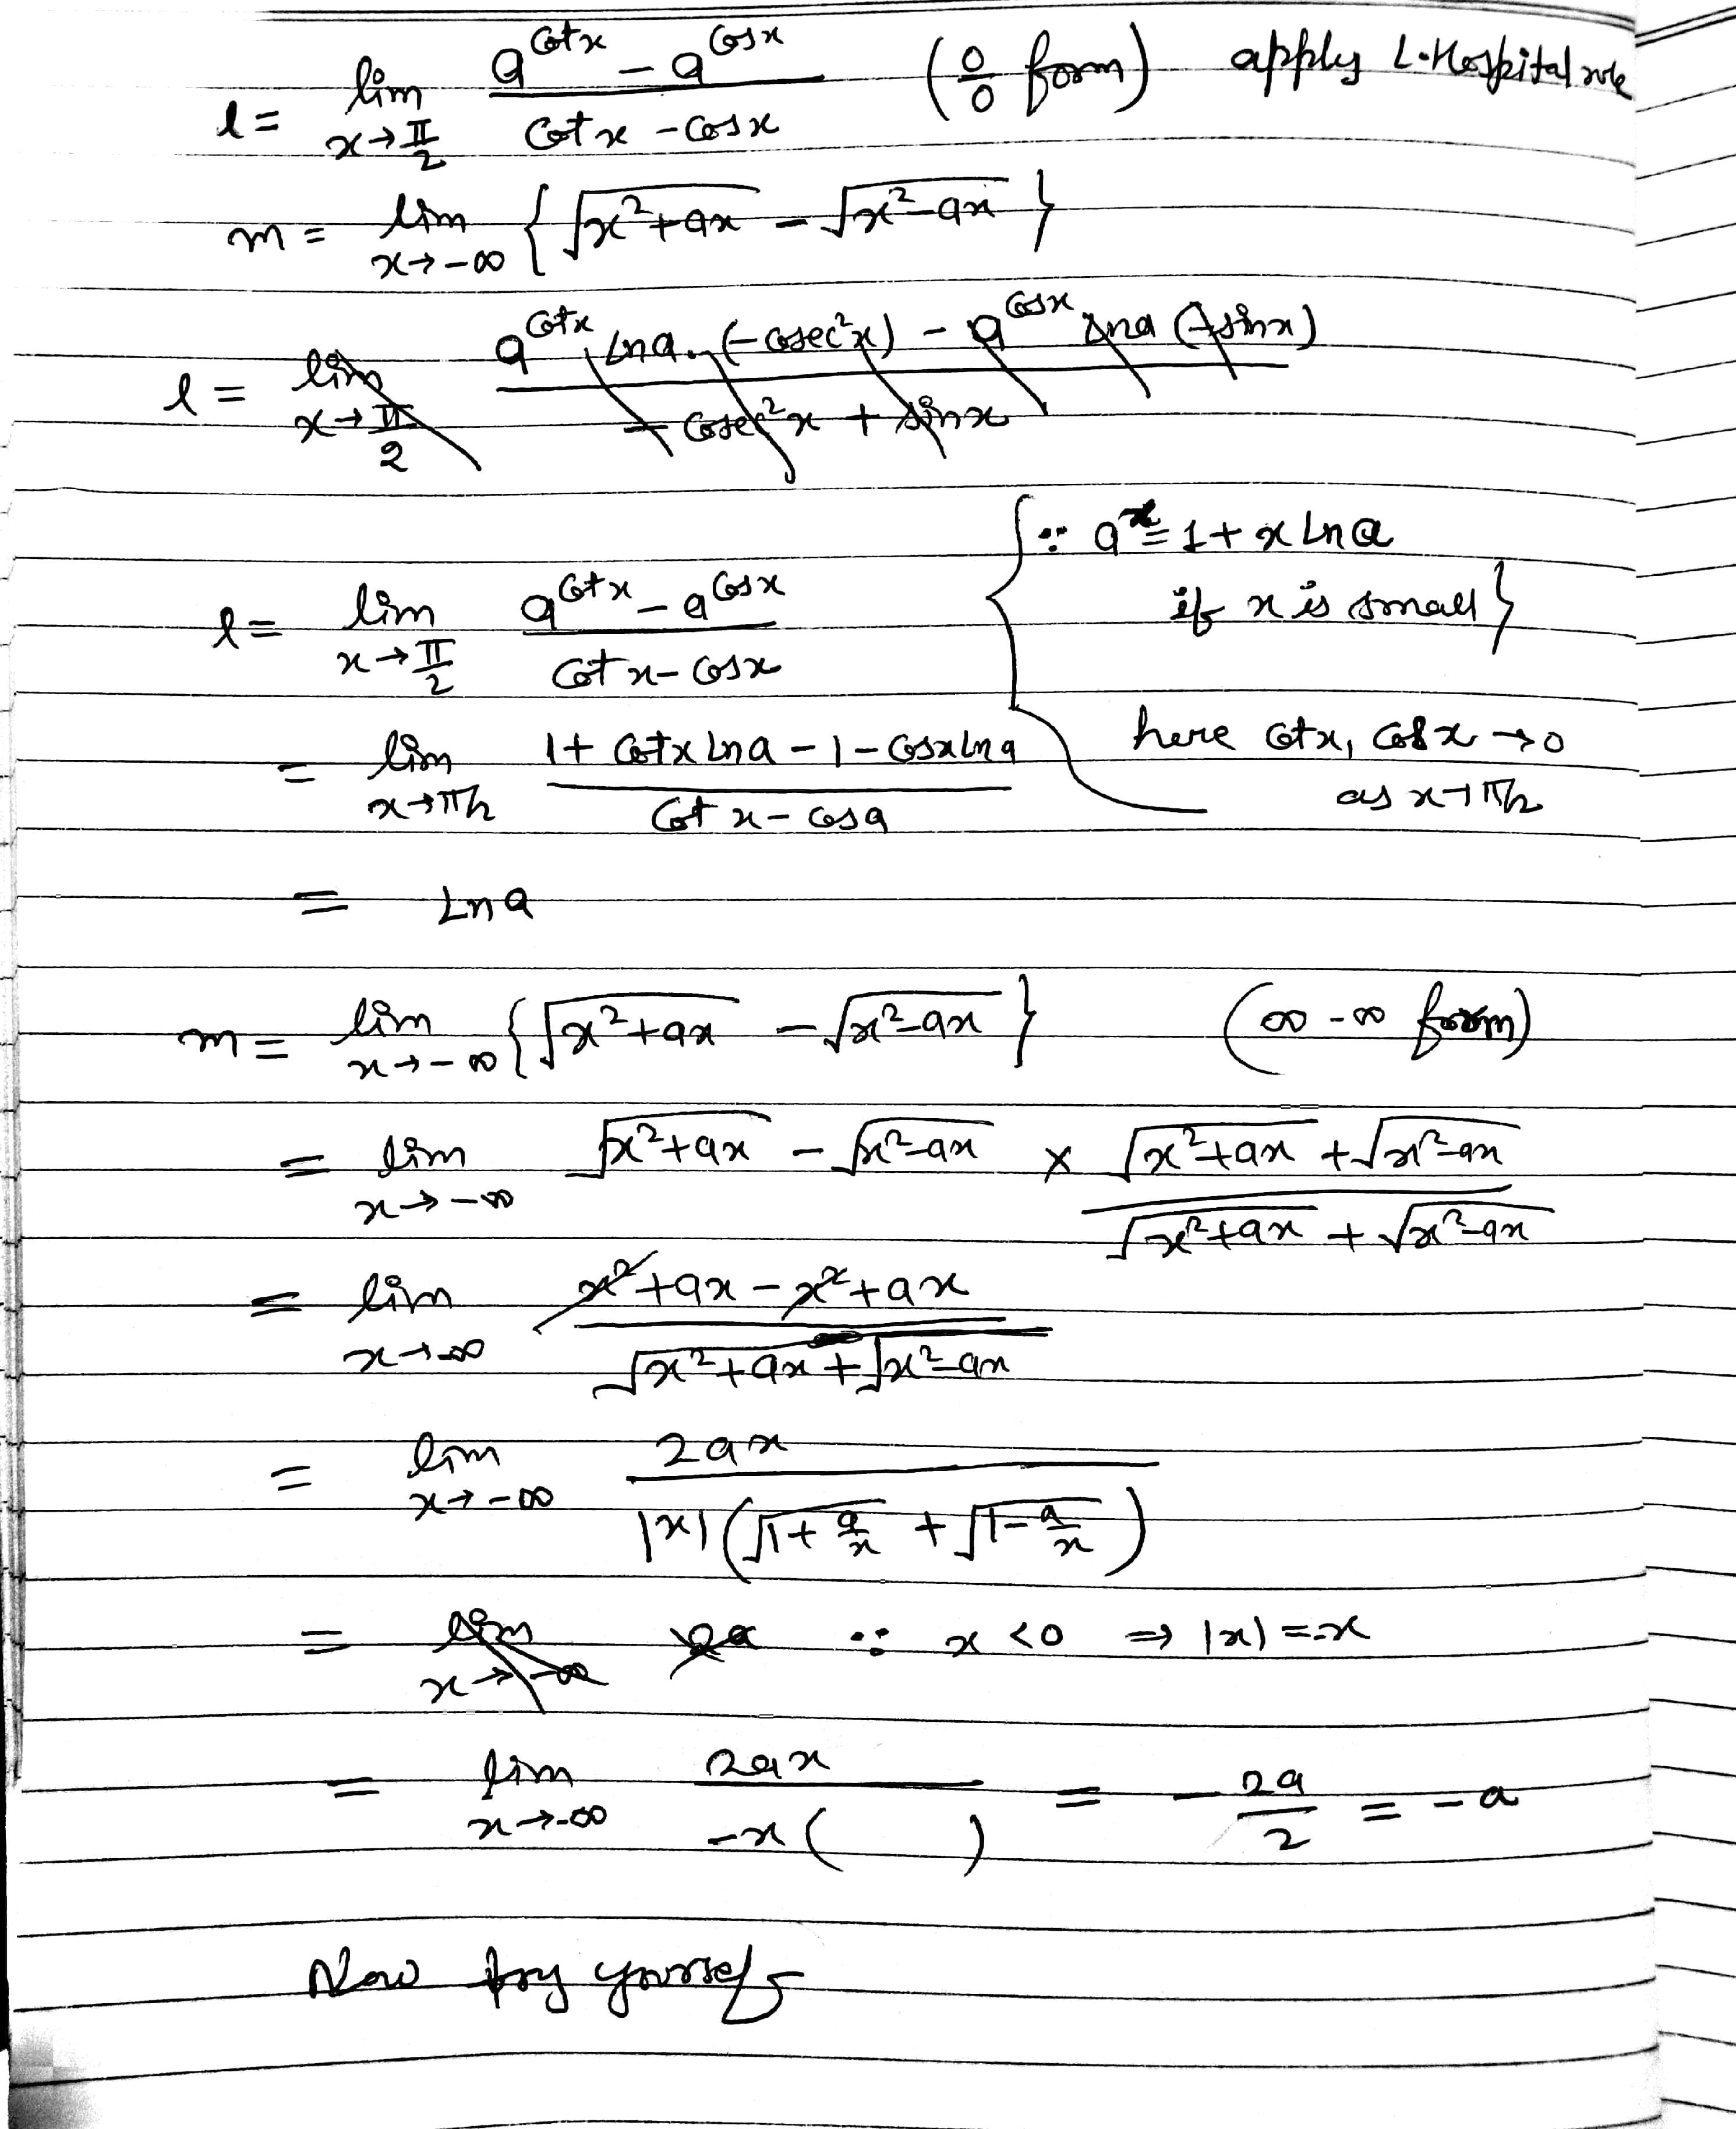 l = lim x→π/2 (a^cotx − a^cosx)/(cotx − cosx) (0/0 form) apply L-Hospital rule
m = lim x→−∞ { √(x²+ax) − √(x²−ax) }
l = lim x→π/2 (a^cotx lna. (−cosec²x) − a^cosx lna (−sinx))/(−cosec²x + sinx)
{∵ a^x = 1 + x lna
if x is small}
l = lim x→π/2 (a^cotx − a^cosx)/(cotx − cosx)
= lim x→π/2 (1 + cotx lna − 1 − cosx lna)/(cotx − cosa)
here cotx, cosx → 0
as x→π/2
= lna
m = lim x→−∞ { √(x²+ax) − √(x²−ax) } (∞ − ∞ form)
= lim x→−∞ √(x²+ax) − √(x²−ax) × (√(x²+ax) + √(x²−ax))/(√(x²+ax) + √(x²−ax))
= lim x→−∞ (x²+ax−x²+ax)/(√(x²+ax) + √(x²−ax))
= lim x→−∞ 2ax/(|x|(√(1+a/x) + √(1−a/x)))
= lim x→−∞ 2a ∵ x<0 ⇒ |x| = −x
= lim x→−∞ 2ax/(−x( )) = −2a/2 = −a
Now try yourself